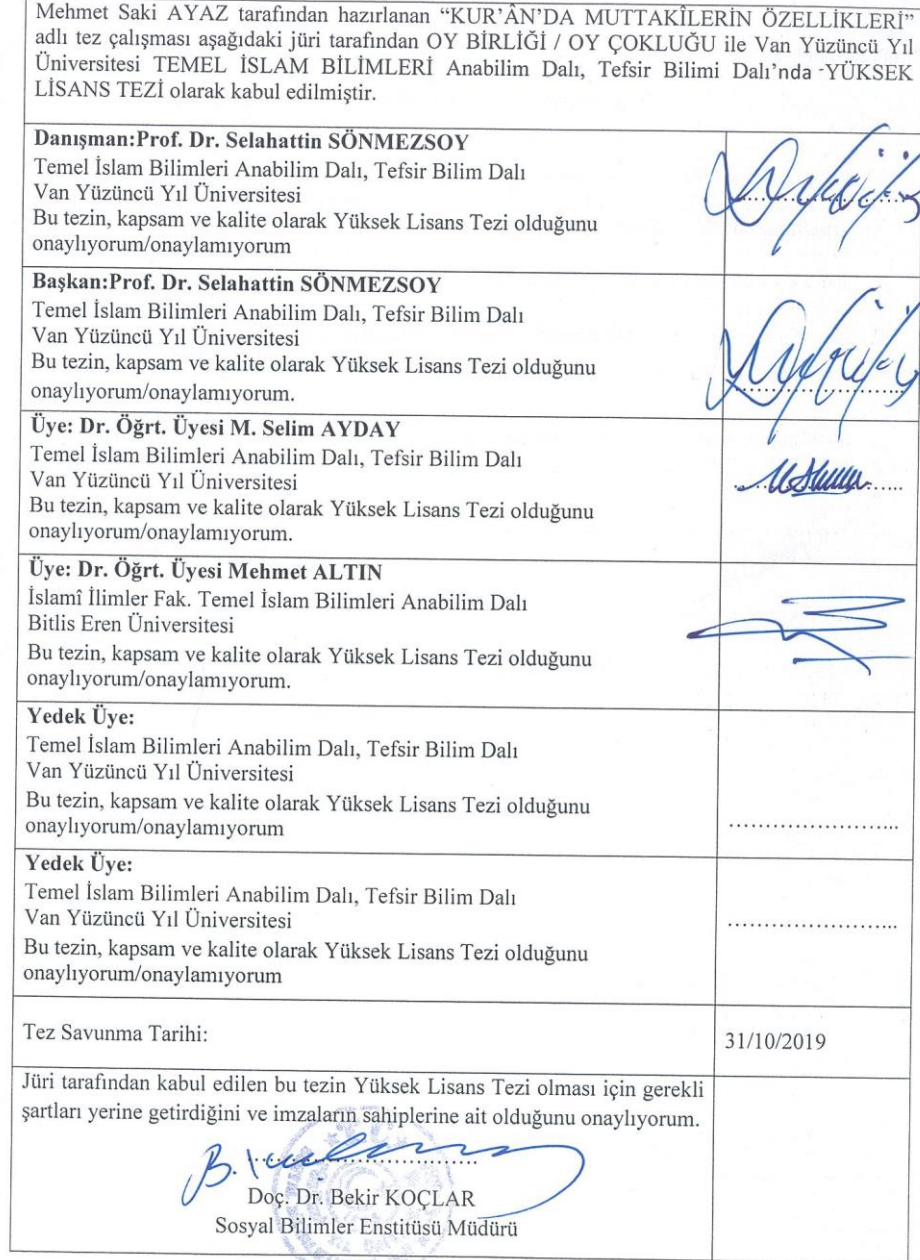 Mehmet Saki AYAZ tarafından hazırlanan “KUR’ÂN’DA MUTTAKÎLERİN ÖZELLİKLERİ”
adlı tez çalışması aşağıdaki jüri tarafından OY BİRLİĞİ / OY ÇOKLUĞU ile Van Yüzüncü Yıl
Üniversitesi TEMEL İSLAM BİLİMLERİ Anabilim Dalı, Tefsir Bilimi Dalı’nda -YÜKSEK
LİSANS TEZİ olarak kabul edilmiştir.
Danışman:Prof. Dr. Selahattin SÖNMEZSOY
Temel İslam Bilimleri Anabilim Dalı, Tefsir Bilim Dalı
Van Yüzüncü Yıl Üniversitesi
Bu tezin, kapsam ve kalite olarak Yüksek Lisans Tezi olduğunu
onaylıyorum/onaylamıyorum
Başkan:Prof. Dr. Selahattin SÖNMEZSOY
Temel İslam Bilimleri Anabilim Dalı, Tefsir Bilim Dalı
Van Yüzüncü Yıl Üniversitesi
Bu tezin, kapsam ve kalite olarak Yüksek Lisans Tezi olduğunu
onaylıyorum/onaylamıyorum.
Üye: Dr. Öğrt. Üyesi M. Selim AYDAY
Temel İslam Bilimleri Anabilim Dalı, Tefsir Bilim Dalı
Van Yüzüncü Yıl Üniversitesi
Bu tezin, kapsam ve kalite olarak Yüksek Lisans Tezi olduğunu
onaylıyorum/onaylamıyorum.
Üye: Dr. Öğrt. Üyesi Mehmet ALTIN
İslamî İlimler Fak. Temel İslam Bilimleri Anabilim Dalı
Bitlis Eren Üniversitesi
Bu tezin, kapsam ve kalite olarak Yüksek Lisans Tezi olduğunu
onaylıyorum/onaylamıyorum.
Yedek Üye:
Temel İslam Bilimleri Anabilim Dalı, Tefsir Bilim Dalı
Van Yüzüncü Yıl Üniversitesi
Bu tezin, kapsam ve kalite olarak Yüksek Lisans Tezi olduğunu
onaylıyorum/onaylamıyorum
Yedek Üye:
Temel İslam Bilimleri Anabilim Dalı, Tefsir Bilim Dalı
Van Yüzüncü Yıl Üniversitesi
Bu tezin, kapsam ve kalite olarak Yüksek Lisans Tezi olduğunu
onaylıyorum/onaylamıyorum
Tez Savunma Tarihi: 31/10/2019
Jüri tarafından kabul edilen bu tezin Yüksek Lisans Tezi olması için gerekli
şartları yerine getirdiğini ve imzaların sahiplerine ait olduğunu onaylıyorum.
Doç. Dr. Bekir KOÇLAR
Sosyal Bilimler Enstitüsü Müdürü